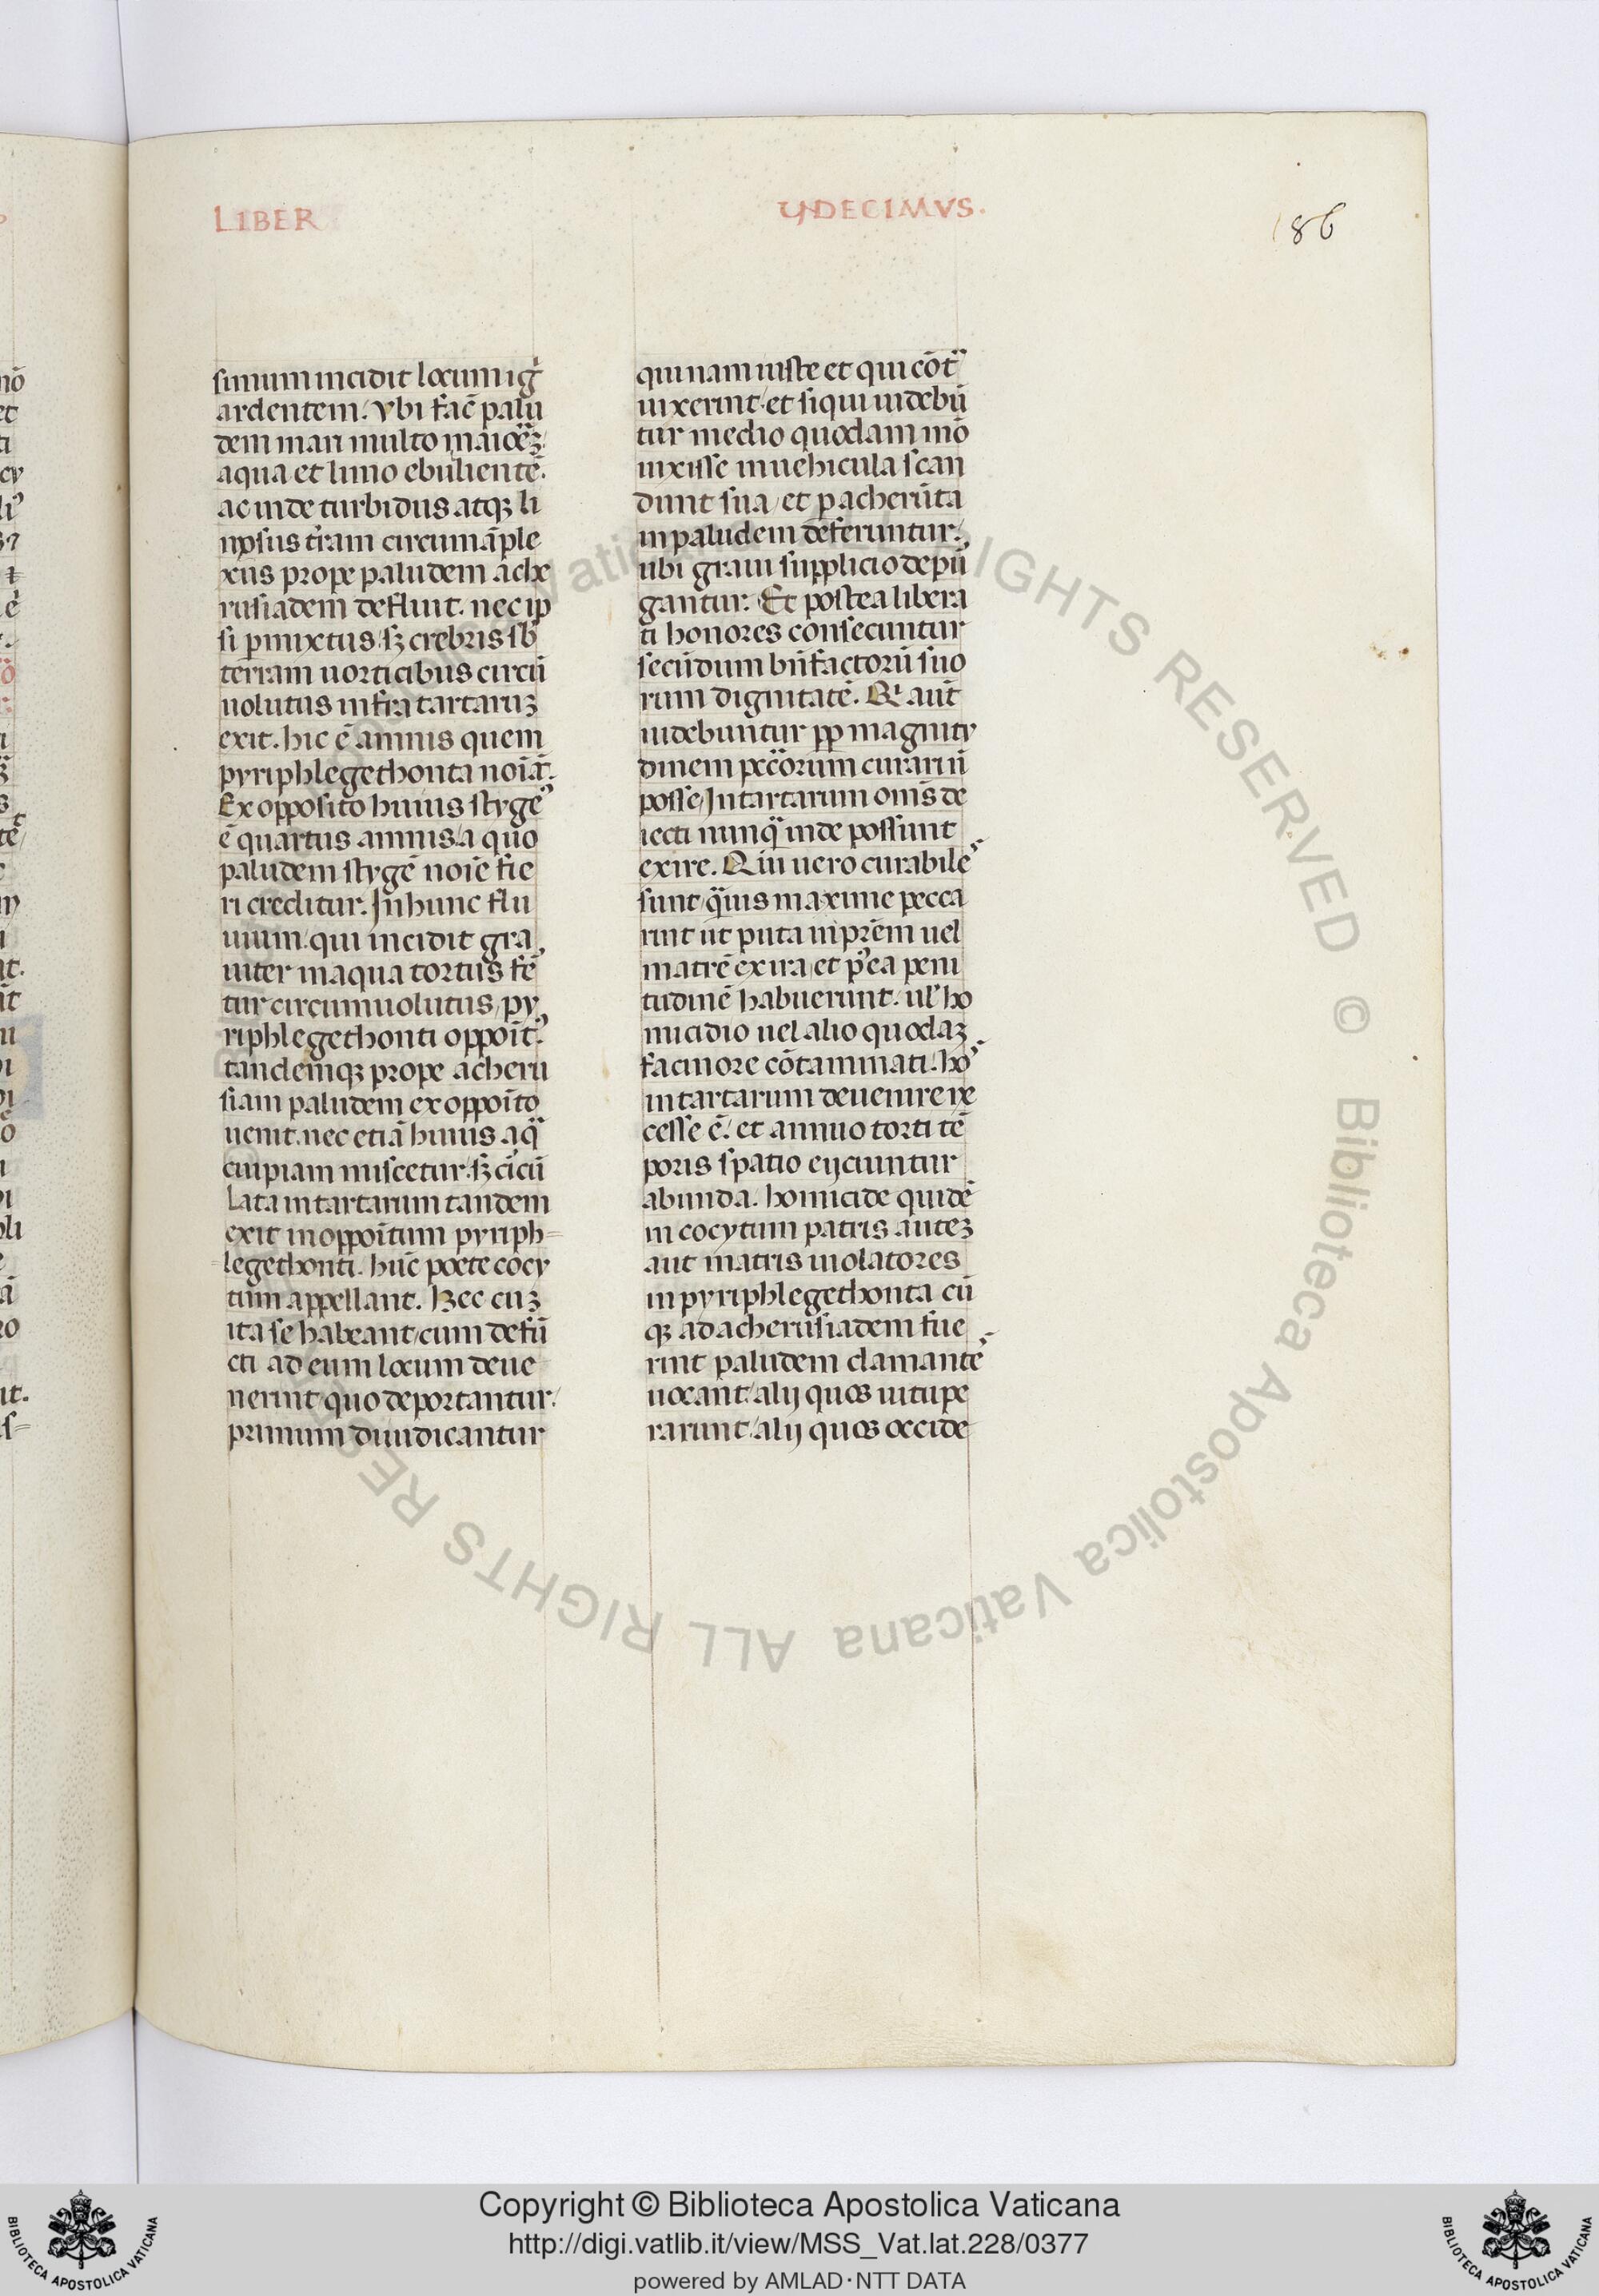 LIBER
YNDECIMVS.
186
simum incidit locum igͥ
ardentem. Vbi facͥ palu
dem mari multo maiorē:
aqua et limo ebulientē.
ac inde turbidus atqꝫ li
mosus tͥram circumāple
xus prope paludem ache
rusiadem defluit. nec ip
si pmixtus: sꝫ crebris sb̄
terram uorticibus circū
uolutus infra tartaruꝫ
exit. hic ē amnis quem
pyriphlegethonta noīāt.
Ex opposito huius stygeꝰ
ē quartus amnis/ a quo
paludem stygē noīe fie
ri creditur. In hunc flu
uium. qui incidit gra
uiter in aqua tortus fē
tur circumuolutus, py
riphlegethonti oppoītꝰ.
tandemqꝫ prope acheru
siam paludem ex oppoīto
uenit. nec etiā huius aqͣ
cuipiam miscetur. sꝫ cīcū
lata in tartarum tandem
exit in oppoītum pyriph=
legethonti. hūc poete cocy
tum appellant. Hec cuꝫ
ita se habeant/ cum defū
cti ad eum locum deue
nerint/ quo deportantur.
primum diiudicantur
quinam iuste et qui cōtͣ
uixerint. et siqui uidebū
tur medio quodam mō
uixisse in uehicula scan
dunt sua/ et p acherūta
in paludem deferuntur.
ubi graui supplicio depū
gantur. Et postea libera
ti honores consecuntur
secūdum bn̄factorū suo
rum dignitatē. Qͥ aūt
uidebuntur pp magnity
dinem pcc̄orum curari ū
posse/ In tartarum om̄s de
iecti nunqͣ inde possunt
exire. Qui uero curabileˢ
sunt/ qͣuis maxime pecca
rint ut puta in prēm uel
matrē ex ira/ et pꝰea peni
tudinē habuerunt. ul̓ ho
micidio uel alio quodaꝫ
facinore cōtaminati. hoˢ
in tartarum deuenire ne
cesse ē. et annuo torti tē
poris spatio eijciuntur
ab unda. homicide quidē
in cocytum patris auteꝫ
aut matris uiolatores
in pyriphlegethonta cū
qꝫ ad acherusiadem fue
rint paludem clamanteˢ
uocant/ alij quos uitupe
rarunt/ alij quos occide
Copyright © Biblioteca Apostolica Vaticana
http://digi.vatlib.it/view/MSS_Vat.lat.228/0377
powered by AMLAD·NTT DATA
BIBLIOTECA APOSTOLICA VATICANA
BIBLIOTECA APOSTOLICA VATICANA